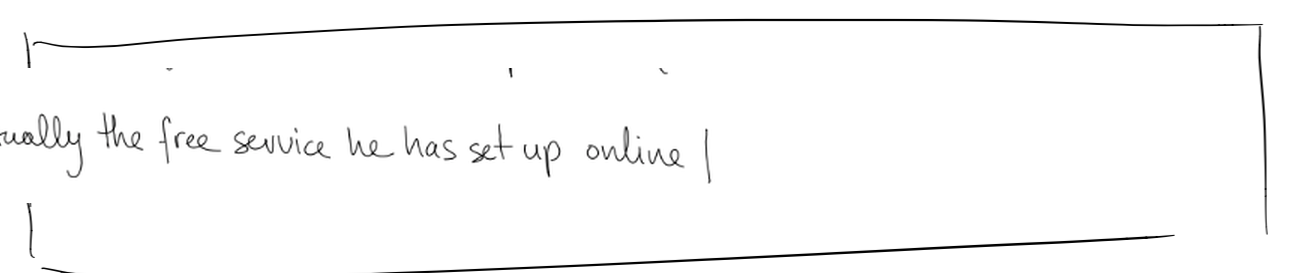 ually the free service he has set up online |